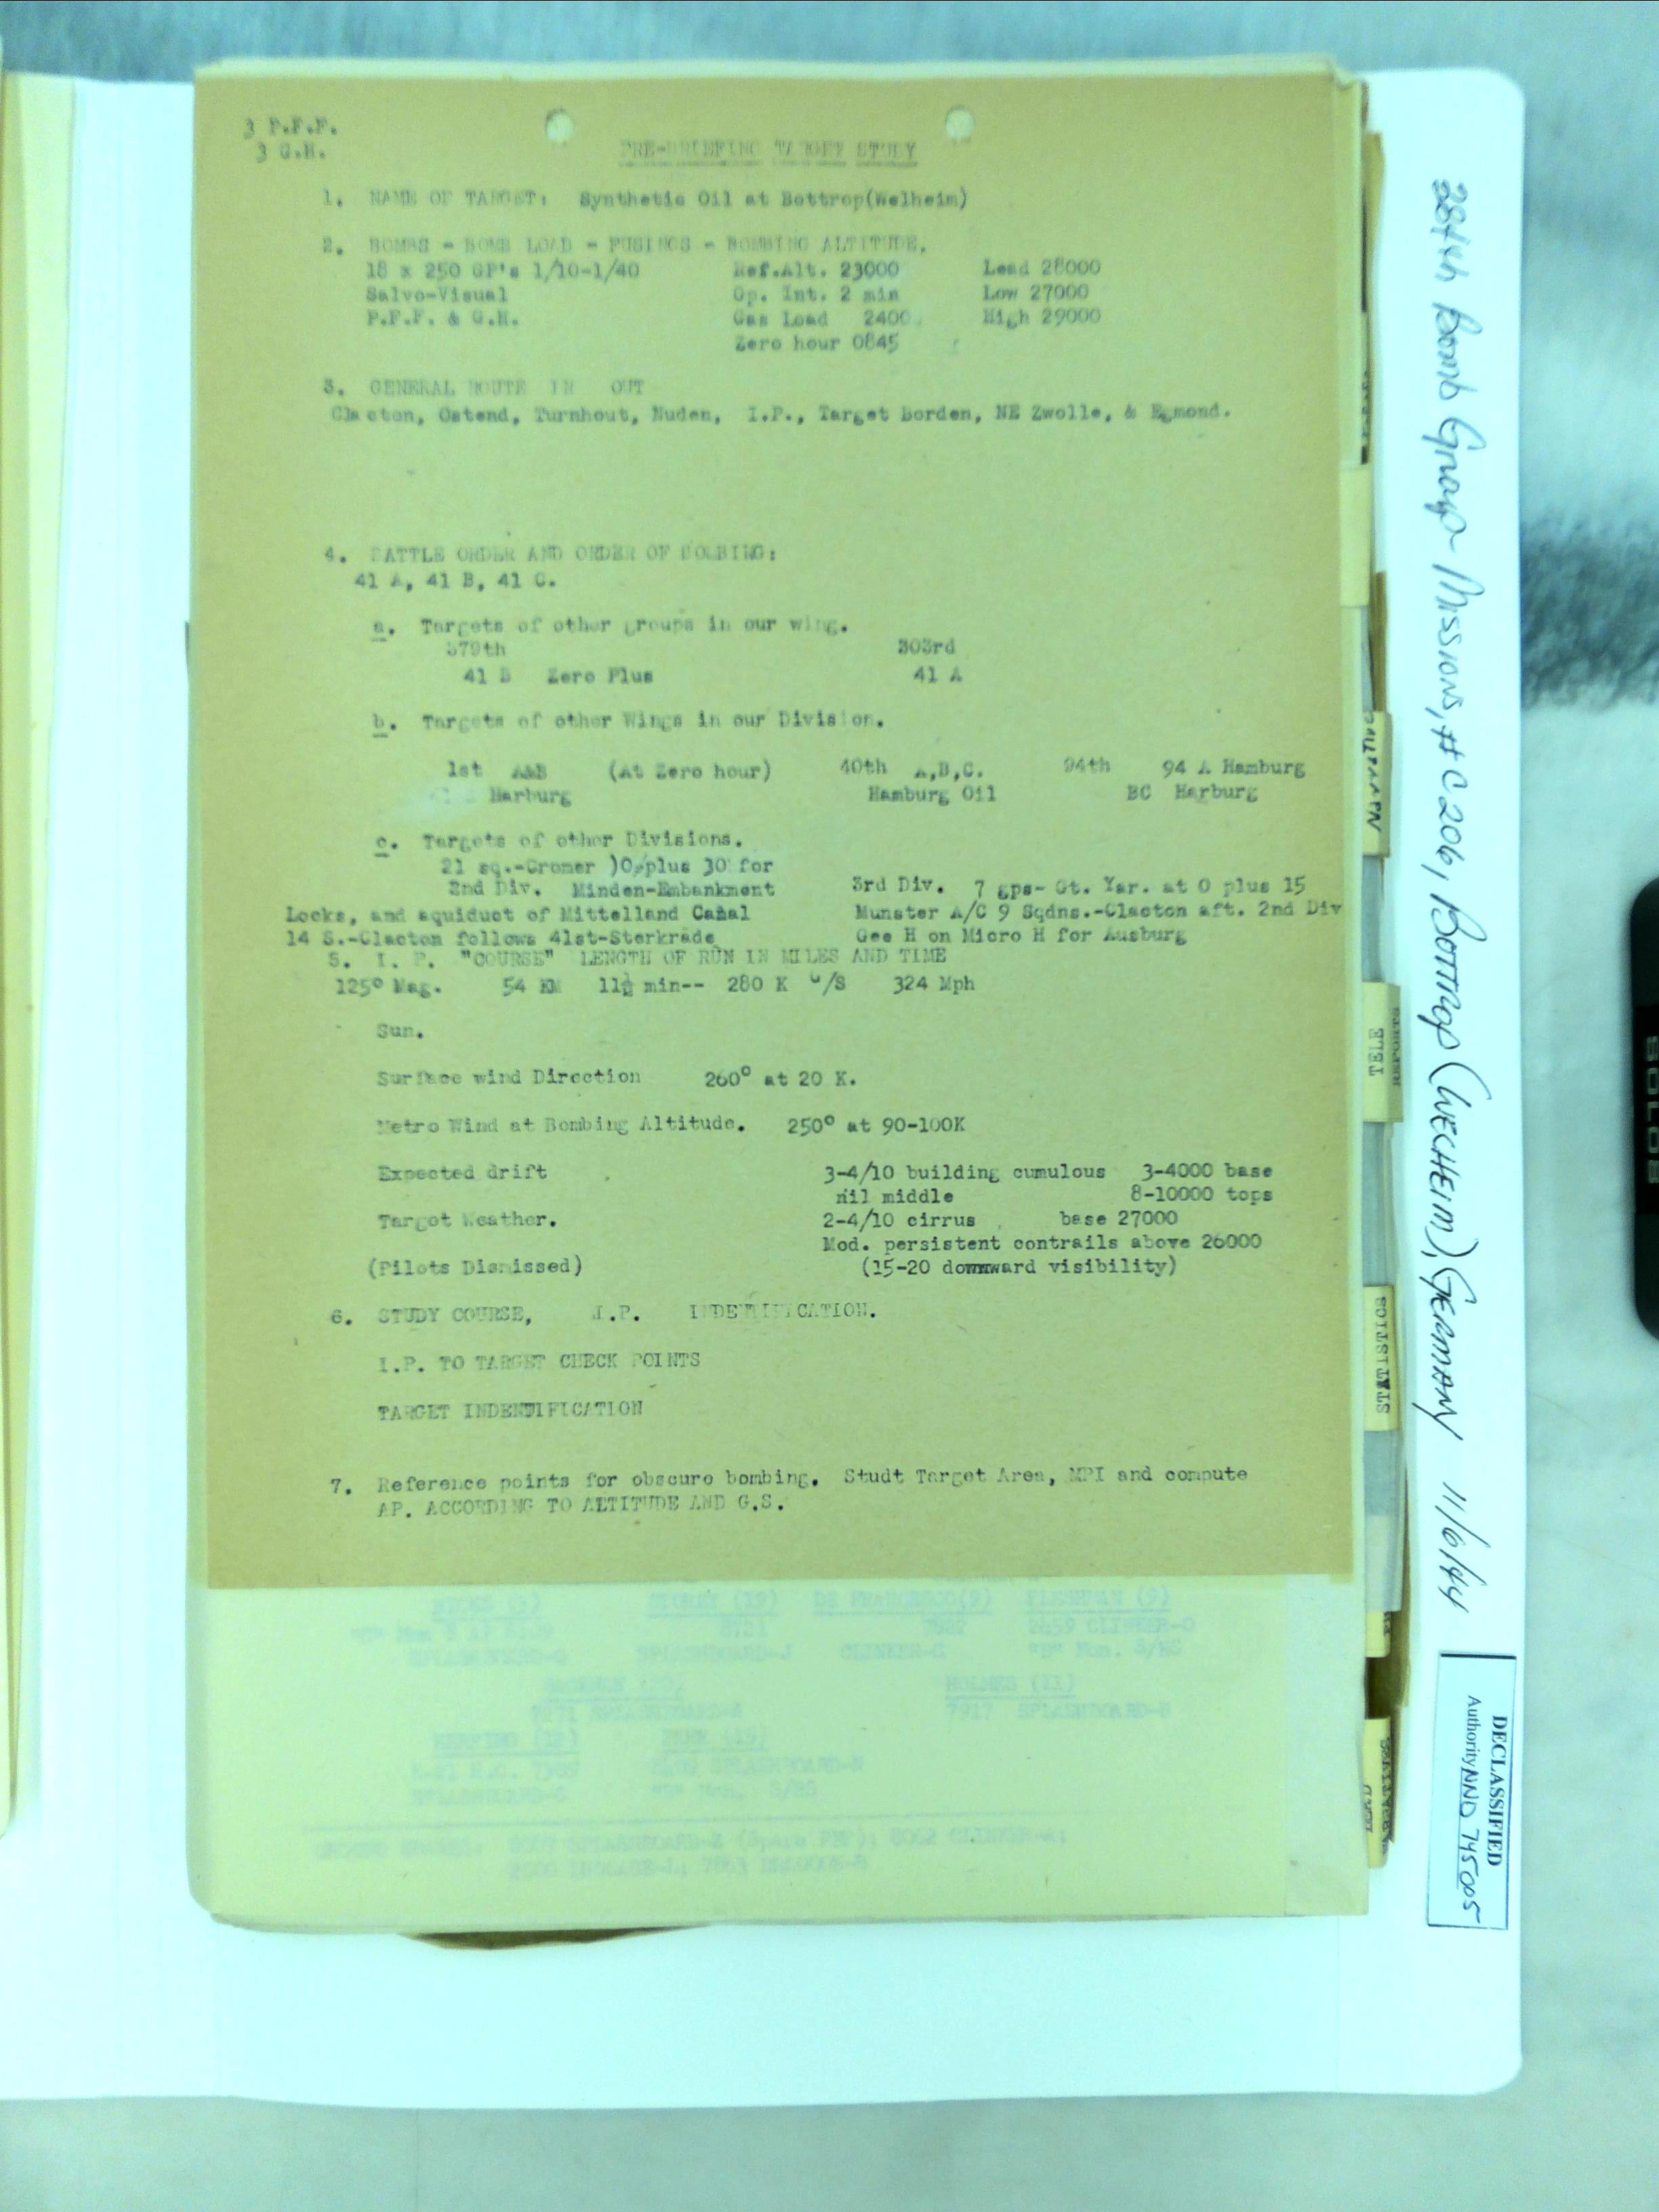 3 P.F.F.
3 G.H.
PRE-BRIEFING TARGET STUDY
1. NAME OF TARGET: Synthetic Oil at Bottrop(Welheim)
2. BOMBS - BOMB LOAD - FUSINGS - BOMBING ALTITUDE.
18 x 250 GP's 1/10-1/40 Ref.Alt. 23000 Lead 28000
Salvo-Visual Op. Int. 2 min Low 27000
P.F.F. & G.H. Gas Load 2400 High 29000
Zero hour 0845
3. GENERAL ROUTE IN OUT
Clacton, Ostend, Turnhout, Nuden, I.P., Target Borden, NE Zwolle, & Egmond.
4. BATTLE ORDER AND ORDER OF BOMBING:
41 A, 41 B, 41 C.
a. Targets of other groups in our wing.
379th 303rd
41 B Zero Plus 41 A
b. Targets of other Wings in our Division.
1st A&B (At Zero hour) 40th A,B,C. 94th 94 A Hamburg
Harburg Hamburg Oil BC Harburg
c. Targets of other Divisions.
21 sq.-Cromer )0-plus 30' for
2nd Div. Minden-Embankment 3rd Div. 7 gps- Gt. Yar. at 0 plus 15
Locks, and aquiduct of Mittelland Canal Munster A/C 9 Sqdns.-Clacton aft. 2nd Div
14 S.-Clacton follows 41st-Sterkrade Gee H on Micro H for Ausburg
5. I. P. "COURSE" LENGTH OF RUN IN MILES AND TIME
125° Mag. 54 KM 11½ min-- 280 K G/S 324 Mph
Sun.
Surface wind Direction 260° at 20 K.
Metro Wind at Bombing Altitude. 250° at 90-100K
Expected drift 3-4/10 building cumulous 3-4000 base
nil middle 8-10000 tops
Target Weather. 2-4/10 cirrus base 27000
Mod. persistent contrails above 26000
(Pilots Dismissed) (15-20 downward visibility)
6. STUDY COURSE, I.P. INDENTIFICATION.
I.P. TO TARGET CHECK POINTS
TARGET INDENTIFICATION
7. Reference points for obscure bombing. Studt Target Area, MPI and compute
AP. ACCORDING TO ALTITUDE AND G.S.
HOLMES (11)
7917 SPLASHBOARD-
384th Bomb Group Missions, # C206, Bottrop (WECHEIM), GERMANY 11/6/44
TELE
REPORTS
STATISTICS
DECLASSIFIED
Authority NND 745005